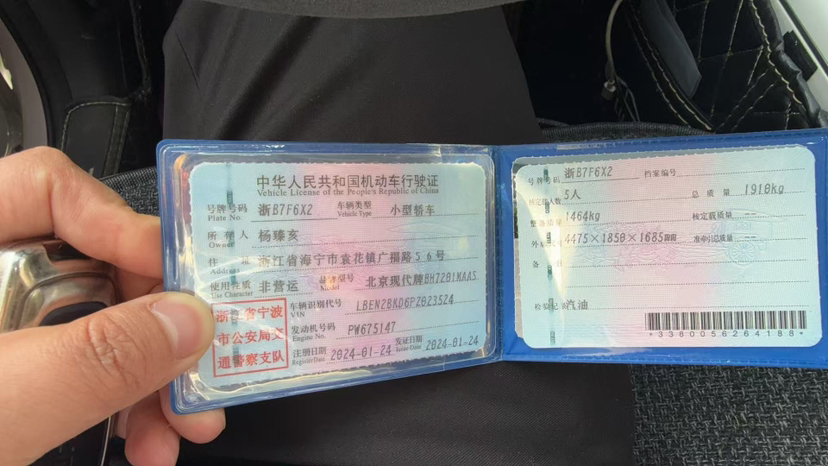 中华人民共和国机动车行驶证
Vehicle License of the People's Republic of China
号牌号码 浙B7F6X2 车辆类型 小型轿车
Plate No. Vehicle Type
所有人 杨臻亥
Owner
住址 浙江省海宁市袁花镇广福路56号
Address
使用性质 非营运 品牌型号 北京现代牌BH7201MAAS
Use Character Model
浙江省宁波
市公安局交
通警察支队
车辆识别代号 LBEN2BKD6PZ023524
VIN
发动机号码 PW675147
Engine No.
注册日期 2024-01-24 发证日期 2024-01-24
Register Date Issue Date
号牌号码 浙B7F6X2 档案编号
核定载人数 5人 总质量 1910kg
整备质量 1464kg 核定载质量 --
外廓尺寸 4475×1850×1685 准牵引总质量 --
备注
检验记录 汽油
*3380056264188*